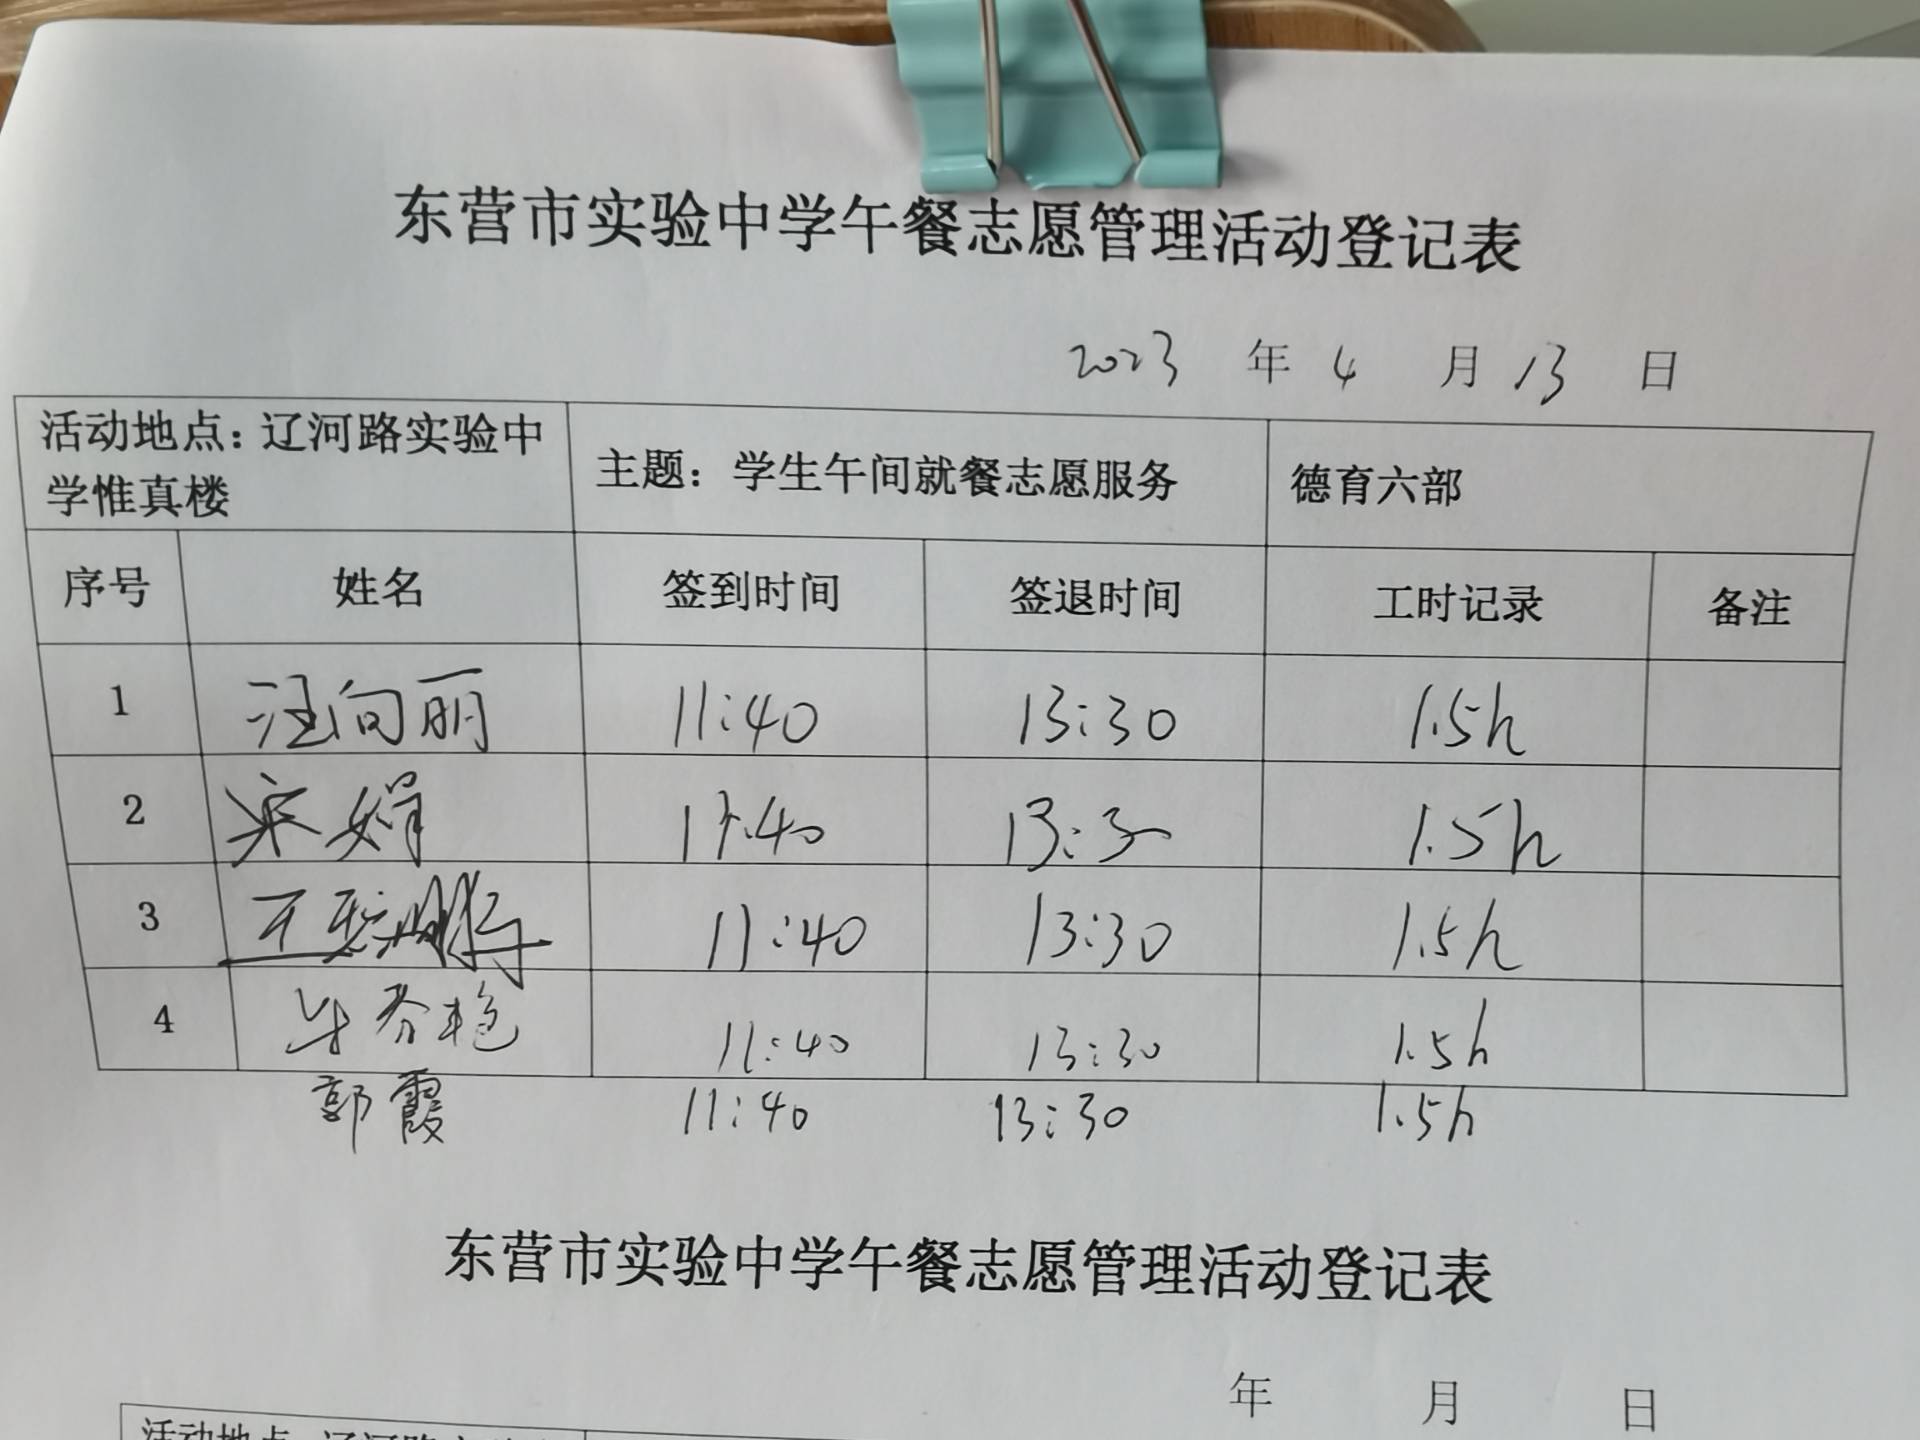 东营市实验中学午餐志愿管理活动登记表
2023 年 4 月 13 日
活动地点：辽河路实验中
学惟真楼
主题：学生午间就餐志愿服务
德育六部
序号 姓名 签到时间 签退时间 工时记录 备注
1 汪向丽 11:40 13:30 1.5h
2 宋娟 11:40 13:30 1.5h
3 11:40 13:30 1.5h
4 牛芬艳 11:40 13:30 1.5h
郭霞 11:40 13:30 1.5h
东营市实验中学午餐志愿管理活动登记表
年 月 日
活动地点